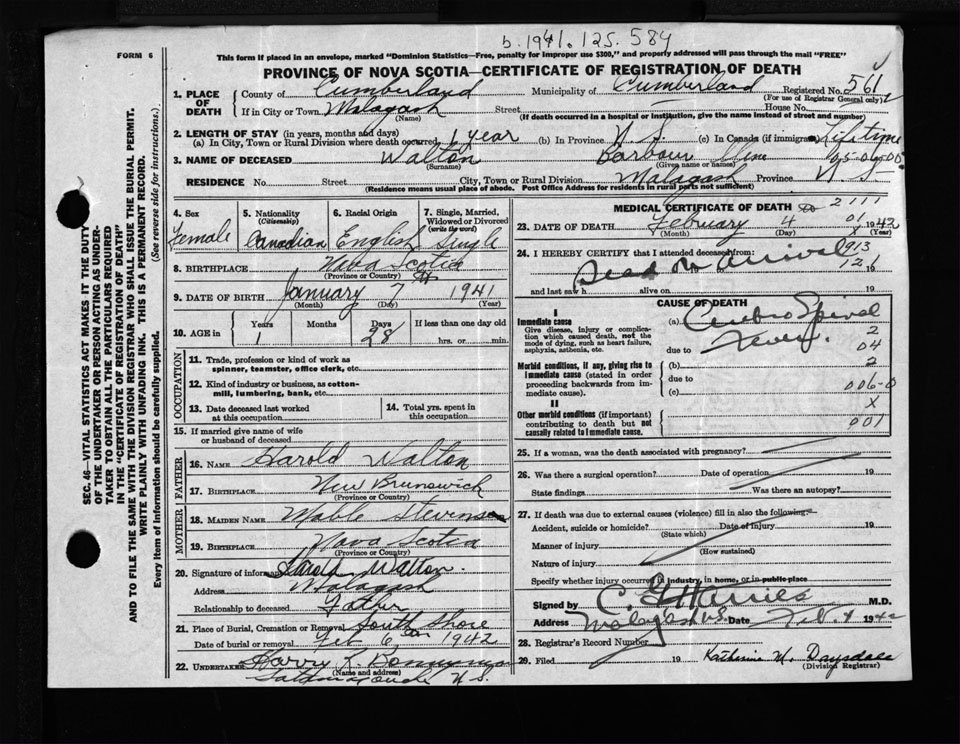 b. 1941. 125. 584
FORM 6
This form if placed in an envelope, marked "Dominion Statistics—Free, penalty for improper use $300," and properly addressed will pass through the mail "FREE"
PROVINCE OF NOVA SCOTIA—CERTIFICATE OF REGISTRATION OF DEATH
1. PLACE OF DEATH County of Cumberland Municipality of Cumberland Registered No. 561
(For use of Registrar General only)
If in City or Town Malagash (Name) Street House No.
(If death occurred in a hospital or institution, give the name instead of street and number)
2. LENGTH OF STAY (in years, months and days)
(a) In City, Town or Rural Division where death occurred 1 year (b) In Province N.S. (c) In Canada (if immigrant) Lifetime
3. NAME OF DECEASED Walton Barbour 05-06-00
(Surname) (Given name or names)
RESIDENCE No. Street City, Town or Rural Division Malagash Province N.S.
(Residence means usual place of abode. Post Office Address for residents in rural parts not sufficient)
4. Sex Female
5. Nationality (Citizenship) Canadian
6. Racial Origin English
7. Single, Married, Widowed or Divorced (write the word) Single
8. BIRTHPLACE Nova Scotia
(Province or Country)
9. DATE OF BIRTH January 7 1941
(Month) (Day) (Year)
10. AGE in Years Months Days If less than one day old
1 28 hrs. or min.
OCCUPATION
11. Trade, profession or kind of work as spinner, teamster, office clerk, etc.
12. Kind of industry or business, as cotton-mill, lumbering, bank, etc.
13. Date deceased last worked at this occupation
14. Total yrs. spent in this occupation
15. If married give name of wife or husband of deceased
FATHER
16. NAME Harold Walton
17. BIRTHPLACE New Brunswick
(Province or Country)
MOTHER
18. MAIDEN NAME Mable Stevenson
19. BIRTHPLACE Nova Scotia
(Province or Country)
20. Signature of informant Harold Walton.
Address Malagash
Relationship to deceased Father
21. Place of Burial, Cremation or Removal South Shore
Date of burial or removal Feb 6 1942
22. UNDERTAKER Harry K.
(Name and address)
N.S.
MEDICAL CERTIFICATE OF DEATH 2111
23. DATE OF DEATH February 4 01 1942
(Month) (Day) X (Year)
24. I HEREBY CERTIFY that I attended deceased from: 1913
Dead on arrival 126
and last saw h alive on 19
CAUSE OF DEATH
I
Immediate cause
Give disease, injury or complication which caused death, not the mode of dying, such as heart failure, asphyxia, asthenia, etc.
(a) Cerebro Spinal
due to Fever. 2
04
Morbid conditions, if any, giving rise to immediate cause (stated in order proceeding backwards from immediate cause).
(b) 2
due to
(c) 006-0
X
II
Other morbid conditions (if important) contributing to death but not causally related to immediate cause.
001
25. If a woman, was the death associated with pregnancy?
26. Was there a surgical operation? Date of operation 19
State findings Was there an autopsy?
27. If death was due to external causes (violence) fill in also the following:
Accident, suicide or homicide? Date of injury 19
(State which)
Manner of injury
(How sustained)
Nature of injury
Specify whether injury occurred in industry, in home, or in public place
Signed by M.D.
Address Malagash N.S. Date Feb. 4 1942
28. Registrar's Record Number
29. Filed 19 Katherine M. Drysdale
(Division Registrar)
SEC. 46—VITAL STATISTICS ACT MAKES IT THE DUTY
OF THE UNDERTAKER OR PERSON ACTING AS UNDERTAKER TO OBTAIN ALL THE PARTICULARS REQUIRED
IN THE "CERTIFICATE OF REGISTRATION OF DEATH"
AND TO FILE THE SAME WITH THE DIVISION REGISTRAR WHO SHALL ISSUE THE BURIAL PERMIT.
WRITE PLAINLY WITH UNFADING INK. THIS IS A PERMANENT RECORD.
Every item of information should be carefully supplied. (See reverse side for instructions.)